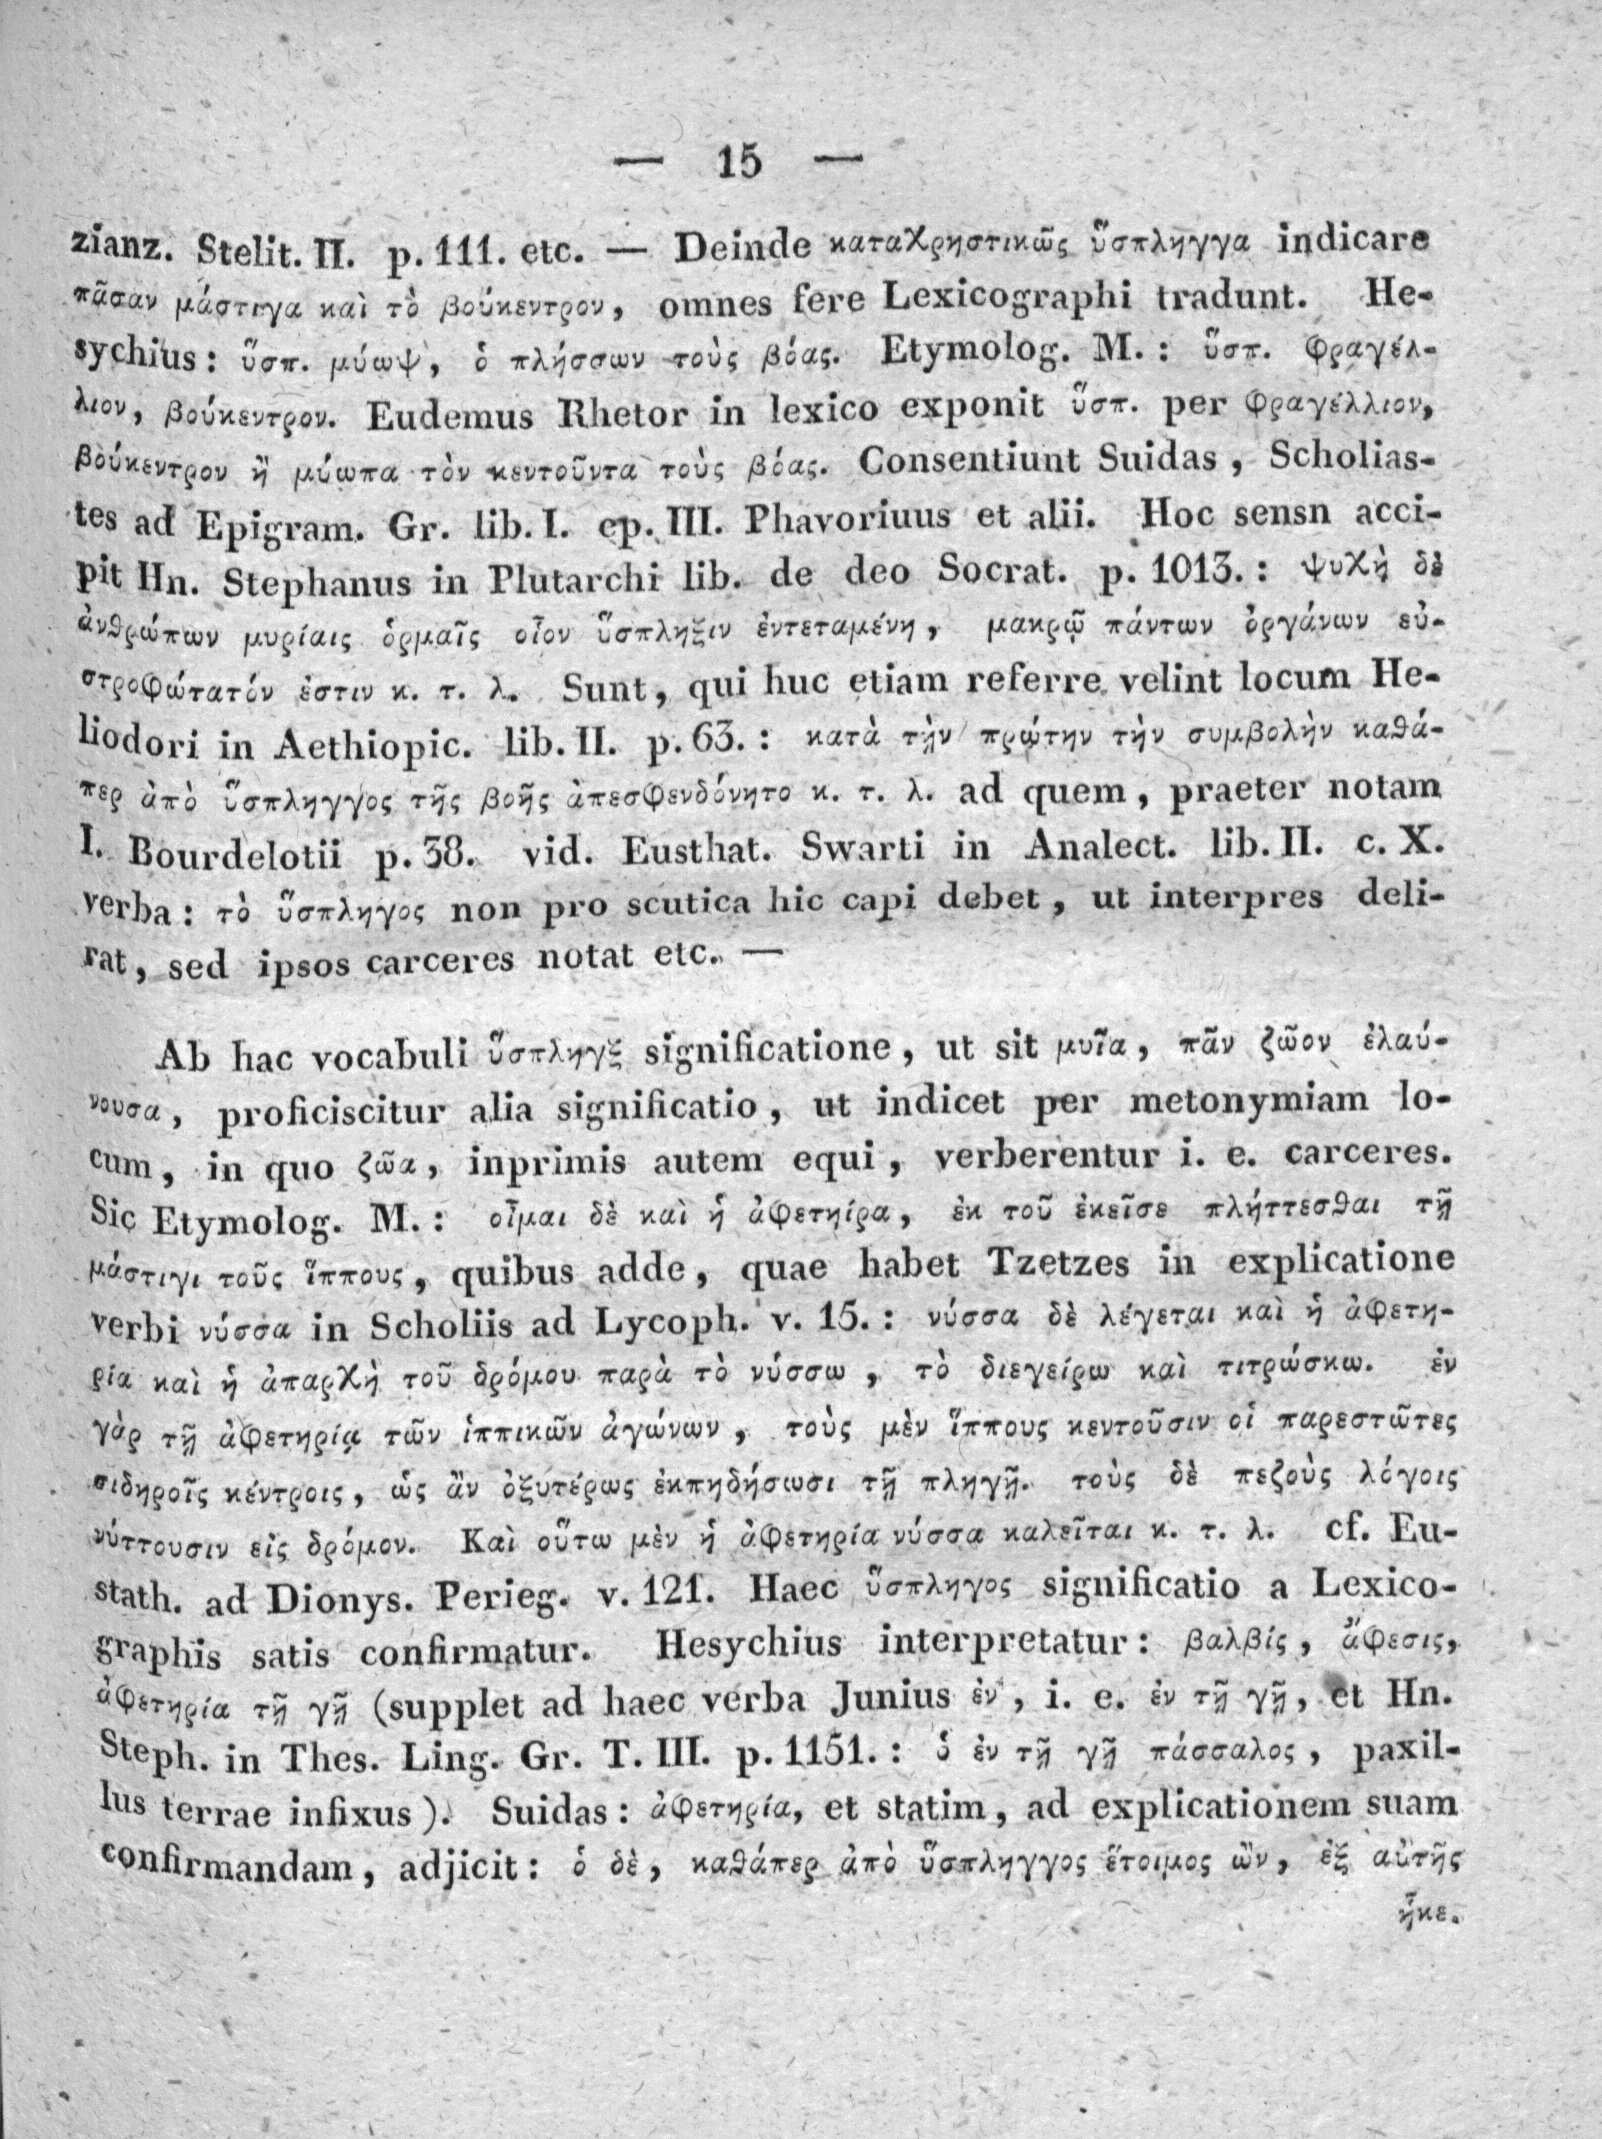 — 15 —
zianz. Stelit. II. p. 111. etc. — Deinde καταχρηστικῶς ὕσπληγγα indicare
πᾶσαν μάστιγα καὶ τὸ βούκεντρον, omnes fere Lexicographi tradunt. He-
sychius: ὕσπ. μύωψ, ὁ πλήσσων τοὺς βόας. Etymolog. M.: ὕσπ. φραγέλ-
λιον, βούκεντρον. Eudemus Rhetor in lexico exponit ὕσπ. per φραγέλλιον,
βούκεντρον ἢ μύωπα τὸν κεντοῦντα τοὺς βόας. Consentiunt Suidas, Scholias-
tes ad Epigram. Gr. lib. I. ep. III. Phavoriuus et alii. Hoc sensn acci-
pit Hn. Stephanus in Plutarchi lib. de deo Socrat. p. 1013.: ψυχὴ δὲ
ἀνθρώπων μυρίαις ὁρμαῖς οἷον ὕσπληξιν ἐντεταμένη, μακρῷ πάντων ὀργάνων εὐ-
στροφώτατόν ἐστιν κ. τ. λ. Sunt, qui huc etiam referre velint locum He-
liodori in Aethiopic. lib. II. p. 63.: κατὰ τὴν πρώτην τὴν συμβολὴν καθά-
περ ἀπὸ ὕσπληγγος τῆς βοῆς ἀπεσφενδόνητο κ. τ. λ. ad quem, praeter notam
I. Bourdelotii p. 38. vid. Eusthat. Swarti in Analect. lib. II. c. X.
verba: τὸ ὕσπληγος non pro scutica hic capi debet, ut interpres deli-
rat, sed ipsos carceres notat etc. —
Ab hac vocabuli ὕσπληγξ significatione, ut sit μυῖα, πᾶν ζῶον ἐλαύ-
νουσα, proficiscitur alia significatio, ut indicet per metonymiam lo-
cum, in quo ζῶα, inprimis autem equi, verberentur i. e. carceres.
Sic Etymolog. M.: οἶμαι δὲ καὶ ἡ ἀφετηίρα, ἐκ τοῦ ἐκεῖσε πλήττεσθαι τῇ
μάστιγι τοῦς ἵππους, quibus adde, quae habet Tzetzes in explicatione
verbi νύσσα in Scholiis ad Lycoph. v. 15.: νύσσα δὲ λέγεται καὶ ἡ ἀφετη-
ρία καὶ ἡ ἀπαρχὴ τοῦ δρόμου παρὰ τὸ νύσσω, τὸ διεγείρω καὶ τιτρώσκω. ἐν
γὰρ τῇ ἀφετηρίᾳ τῶν ἱππικῶν ἀγώνων, τοὺς μὲν ἵππους κεντοῦσιν οἱ παρεστῶτες
σιδηροῖς κέντροις, ὡς ἂν ὀξυτέρως ἐκπηδήσωσι τῇ πληγῇ. τοὺς δὲ πεζοὺς λόγοις
νύττουσιν εἰς δρόμον. Καὶ οὕτω μὲν ἡ ἀφετηρία νύσσα καλεῖται κ. τ. λ. cf. Eu-
stath. ad Dionys. Perieg. v. 121. Haec ὕσπληγος significatio a Lexico-
graphis satis confirmatur. Hesychius interpretatur: βαλβίς, ἄφεσις,
ἀφετηρία τῇ γῇ (supplet ad haec verba Junius ἐν, i. e. ἐν τῇ γῇ, et Hn.
Steph. in Thes. Ling. Gr. T. III. p. 1151.: ὁ ἐν τῇ γῇ πάσσαλος, paxil-
lus terrae infixus). Suidas: ἀφετηρία, et statim, ad explicationem suam
confirmandam, adjicit: ὁ δὲ, καθάπερ ἀπὸ ὕσπληγγος ἕτοιμος ὢν, ἐξ αὐτῆς
ἧκε.